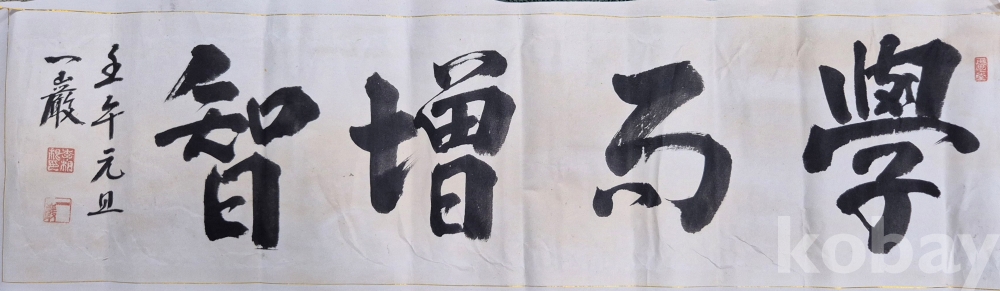 學而增智
壬午元旦
一巖
kobay